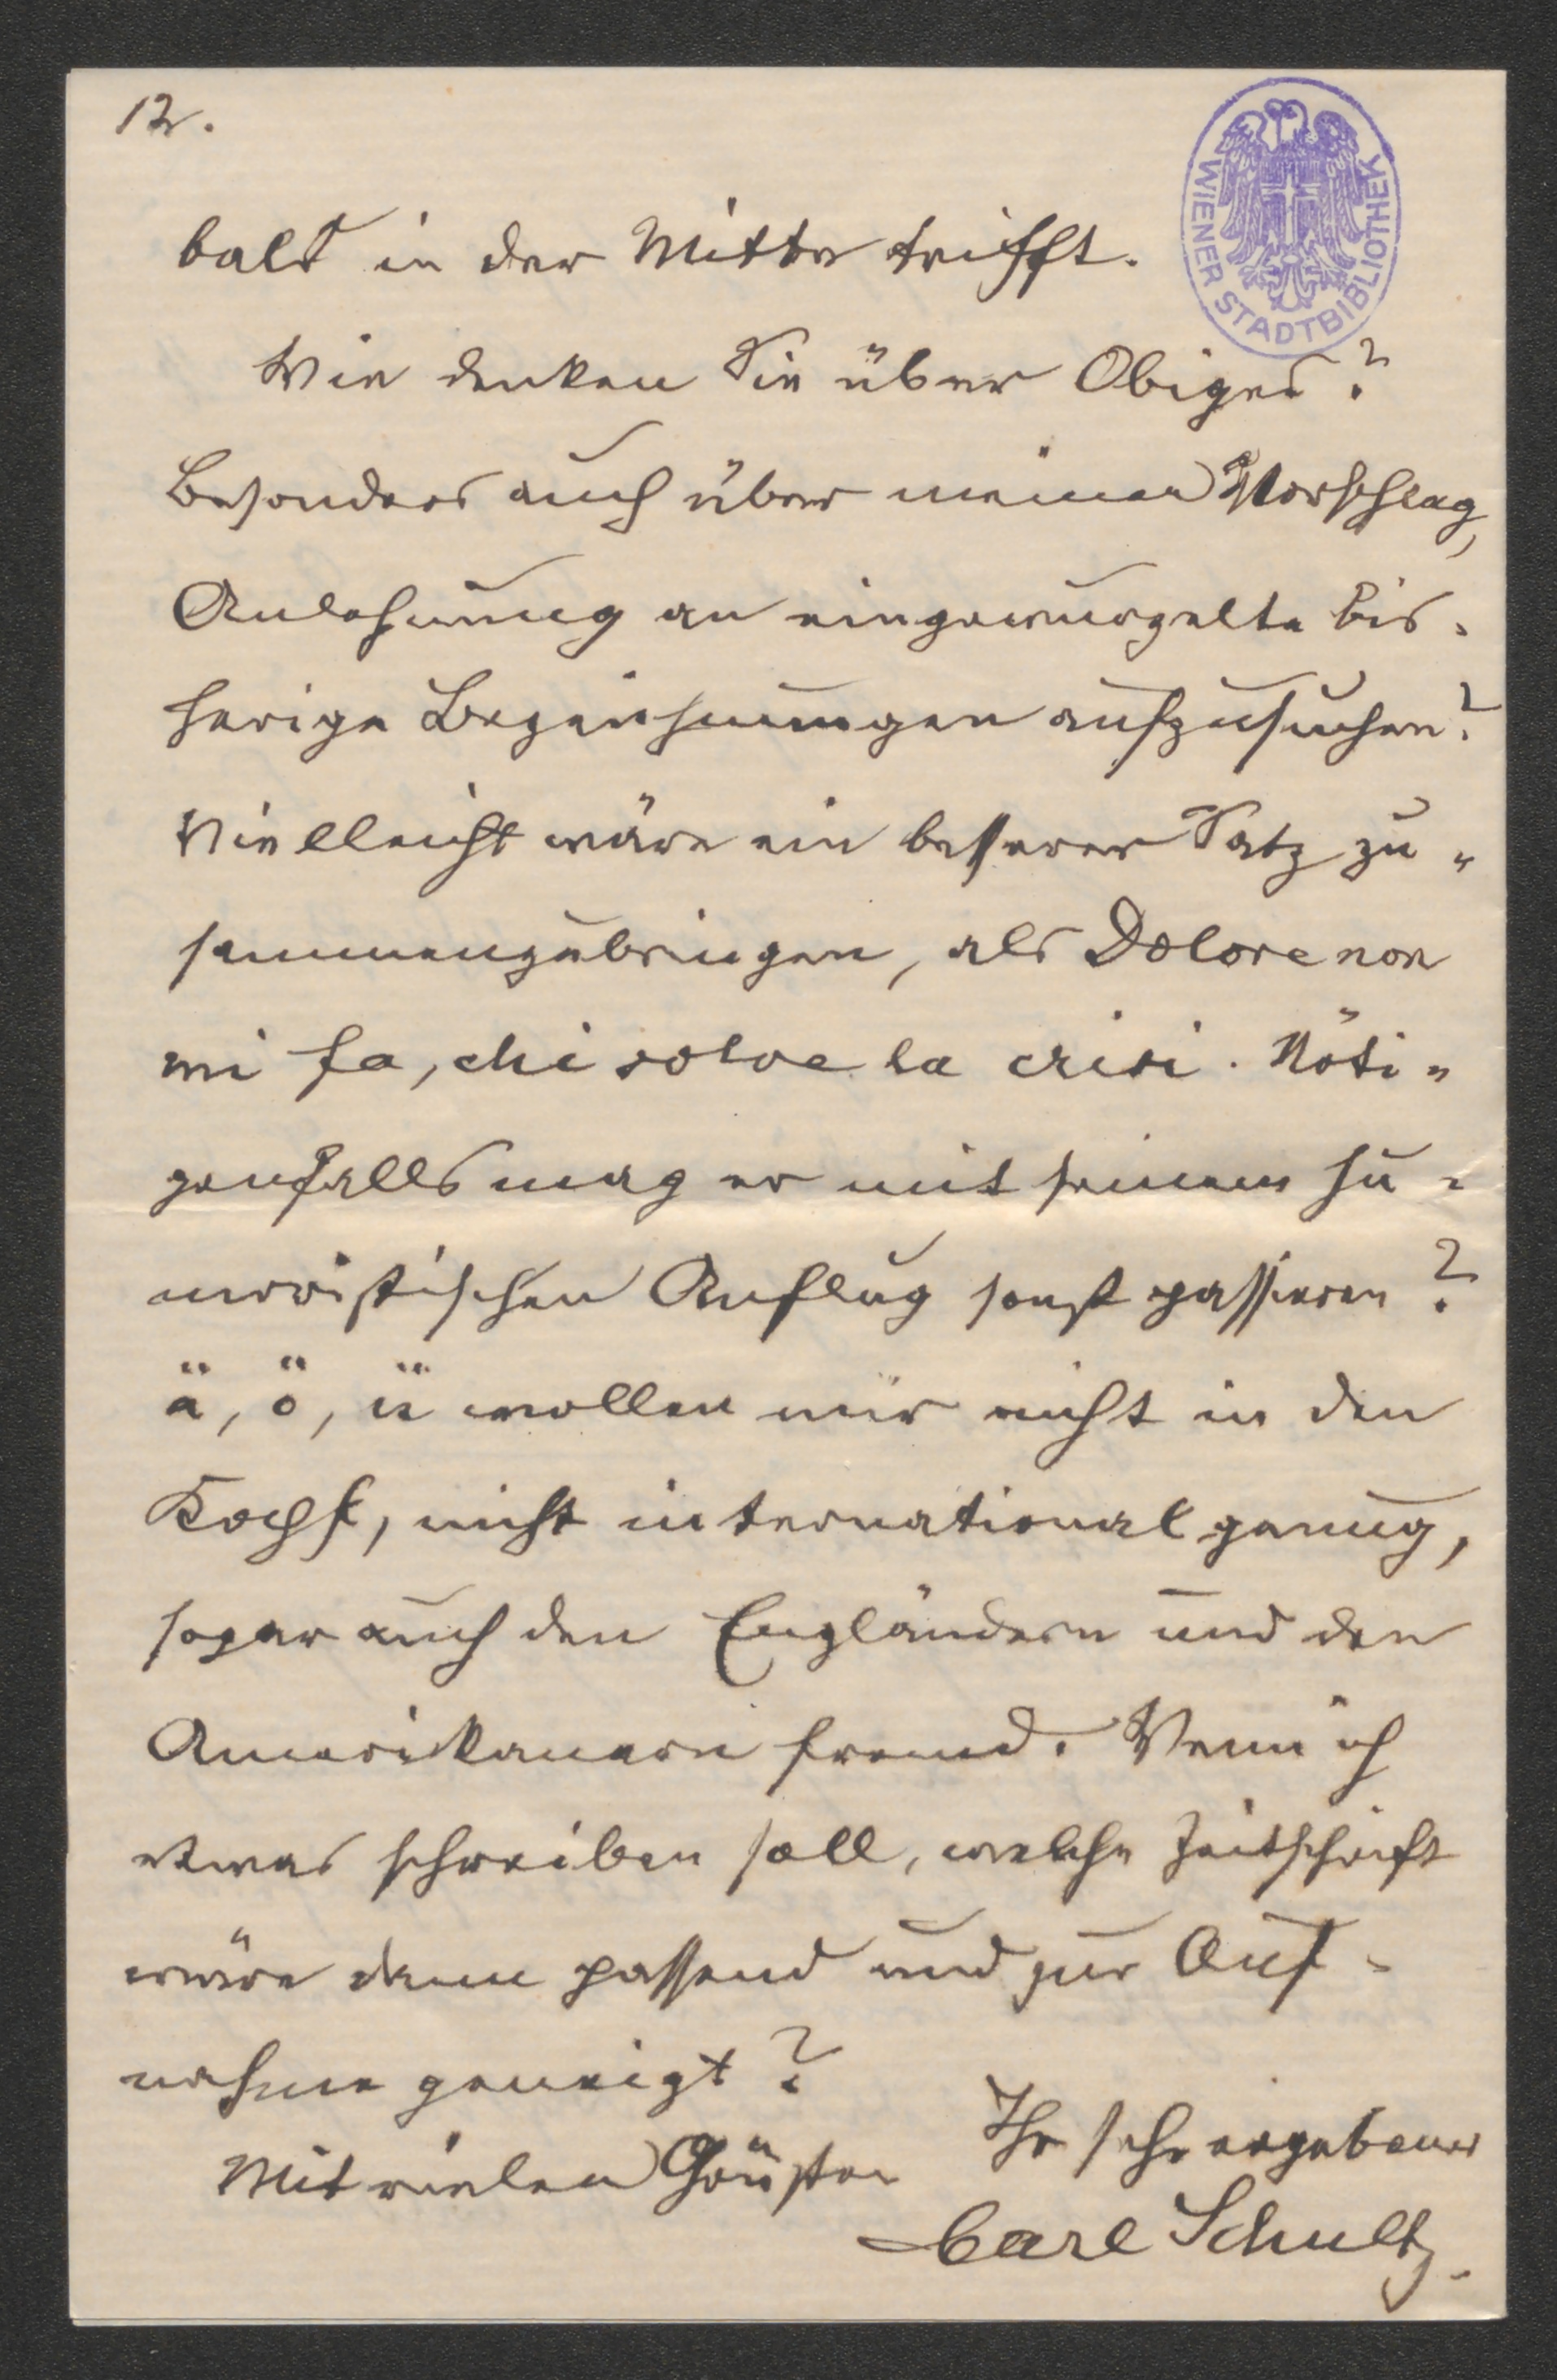 12.
WIENER STADTBIBLIOTHEK
bald in der Mitte trifft.
Wie denken Sie über Obiges?
Besonders auch über meinen Vorschlag,
Anlehnung an eingewurzelte bis-
herige Bezeichnungen aufzusuchen?
Vielleicht wäre ein besserer Satz zu-
sammenzubringen, als Dolore non
mi fa, chi solve la crisi. Nöti-
genfalls mag er mit seinem hu-
moristischen Anflug sonst passieren?
ä, ö, ü wollen mir nicht in den
Kopf, nicht international genug,
sogar auch den Engländern und den
Amerikanern fremd. Wenn ich
etwas schreiben soll, welche Zeitschrift
wäre dann passend und zur Auf-
nahme geneigt?
Mit vielen Grüßen Ihr sehr ergebener
Carl Schultz.